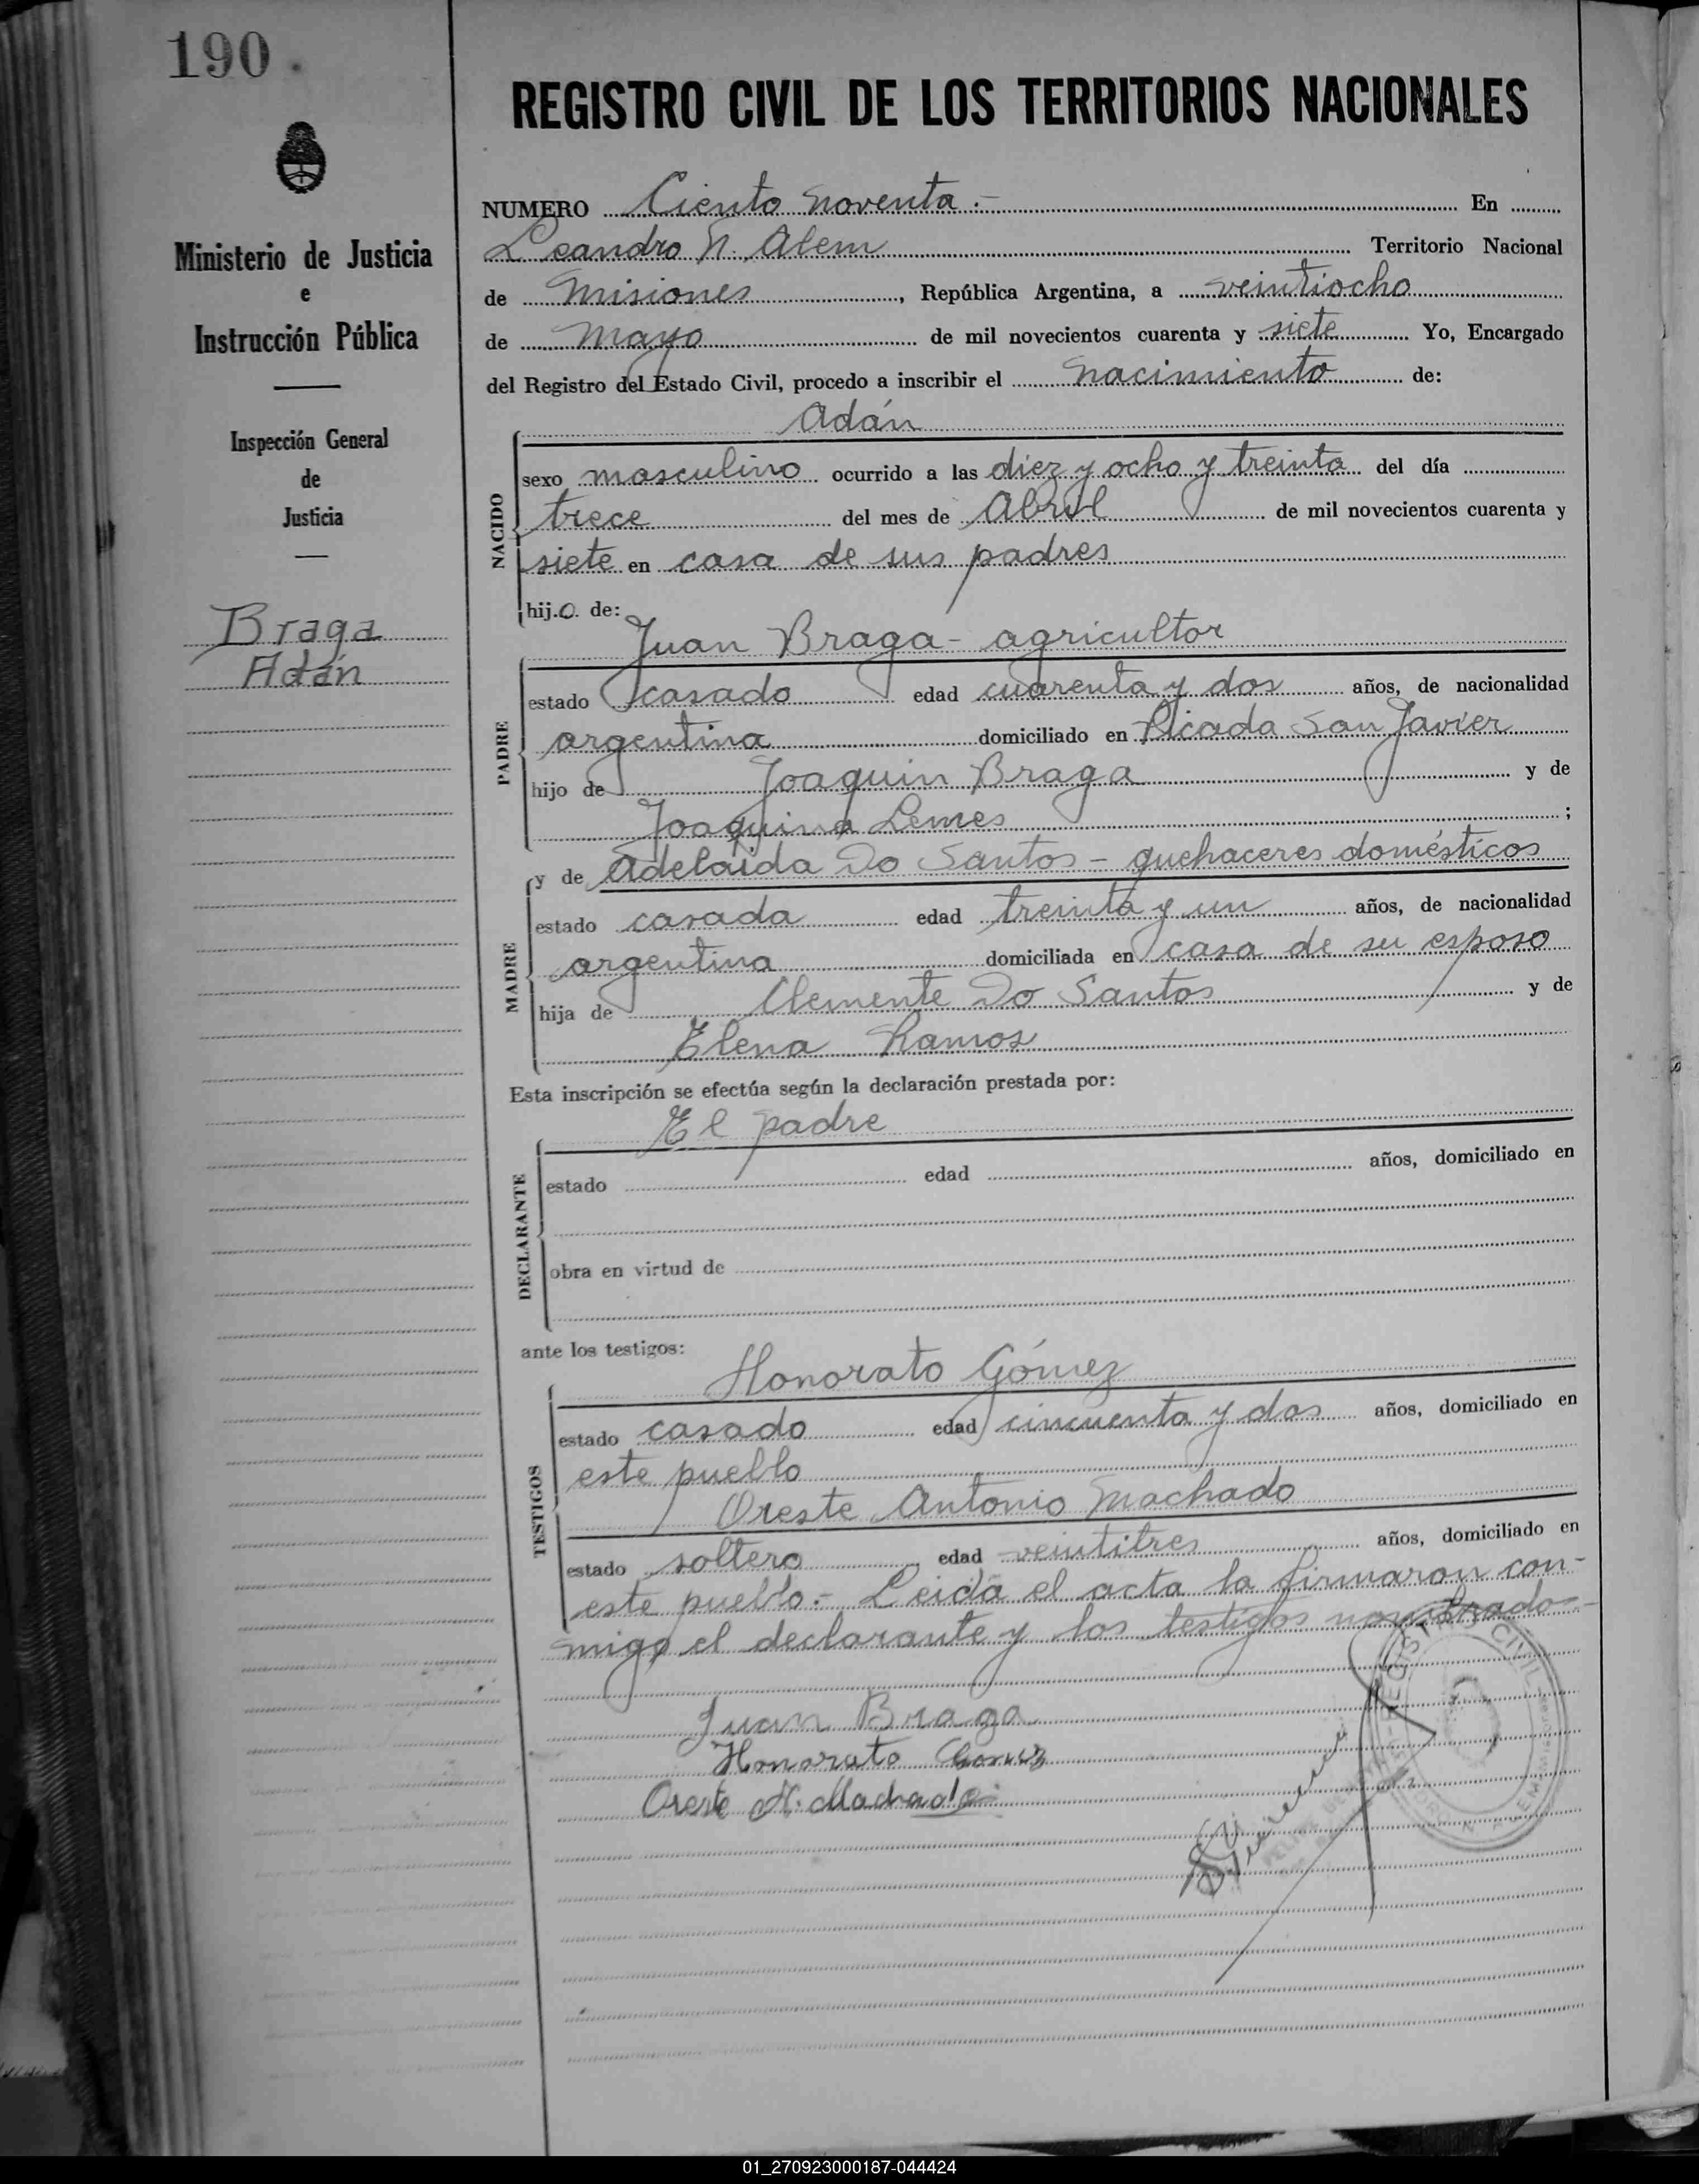 190.
REGISTRO CIVIL DE LOS TERRITORIOS NACIONALES
Ministerio de Justicia
e
Instrucción Pública
Inspección General
de
Justicia
Braga
Adán
NUMERO Ciento noventa.- En
Leandro N. Alem Territorio Nacional
de Misiones, República Argentina, a veintiocho
de mayo de mil novecientos cuarenta y siete Yo, Encargado
del Registro del Estado Civil, procedo a inscribir el nacimiento de:
Adán
NACIDO
sexo masculino ocurrido a las diez y ocho y treinta del día
trece del mes de Abril de mil novecientos cuarenta y
siete en casa de sus padres
hijo de:
Juan Braga - agricultor
PADRE
estado casado edad cuarenta y dos años, de nacionalidad
argentina domiciliado en Picada San Javier
hijo de Joaquin Braga y de
Joaquina Lemes ;
y de Adelaida Do Santos - quehaceres domésticos
MADRE
estado casada edad treinta y un años, de nacionalidad
argentina domiciliada en casa de su esposo
hija de Clemente Do Santos y de
Elena Ramos
Esta inscripción se efectúa según la declaración prestada por:
El padre
DECLARANTE
estado edad años, domiciliado en
obra en virtud de
ante los testigos:
Honorato Gómez
TESTIGOS
estado casado edad cincuenta y dos años, domiciliado en
este pueblo
Oreste Antonio Machado
estado soltero edad veintitres años, domiciliado en
este pueblo.- Leida el acta la firmaron con-
migo el declarante y los testigos nombrados-
Juan Braga
Honorato Gomez
Oreste A. Machado
REGISTRO CIVIL
01_270923000187-044424